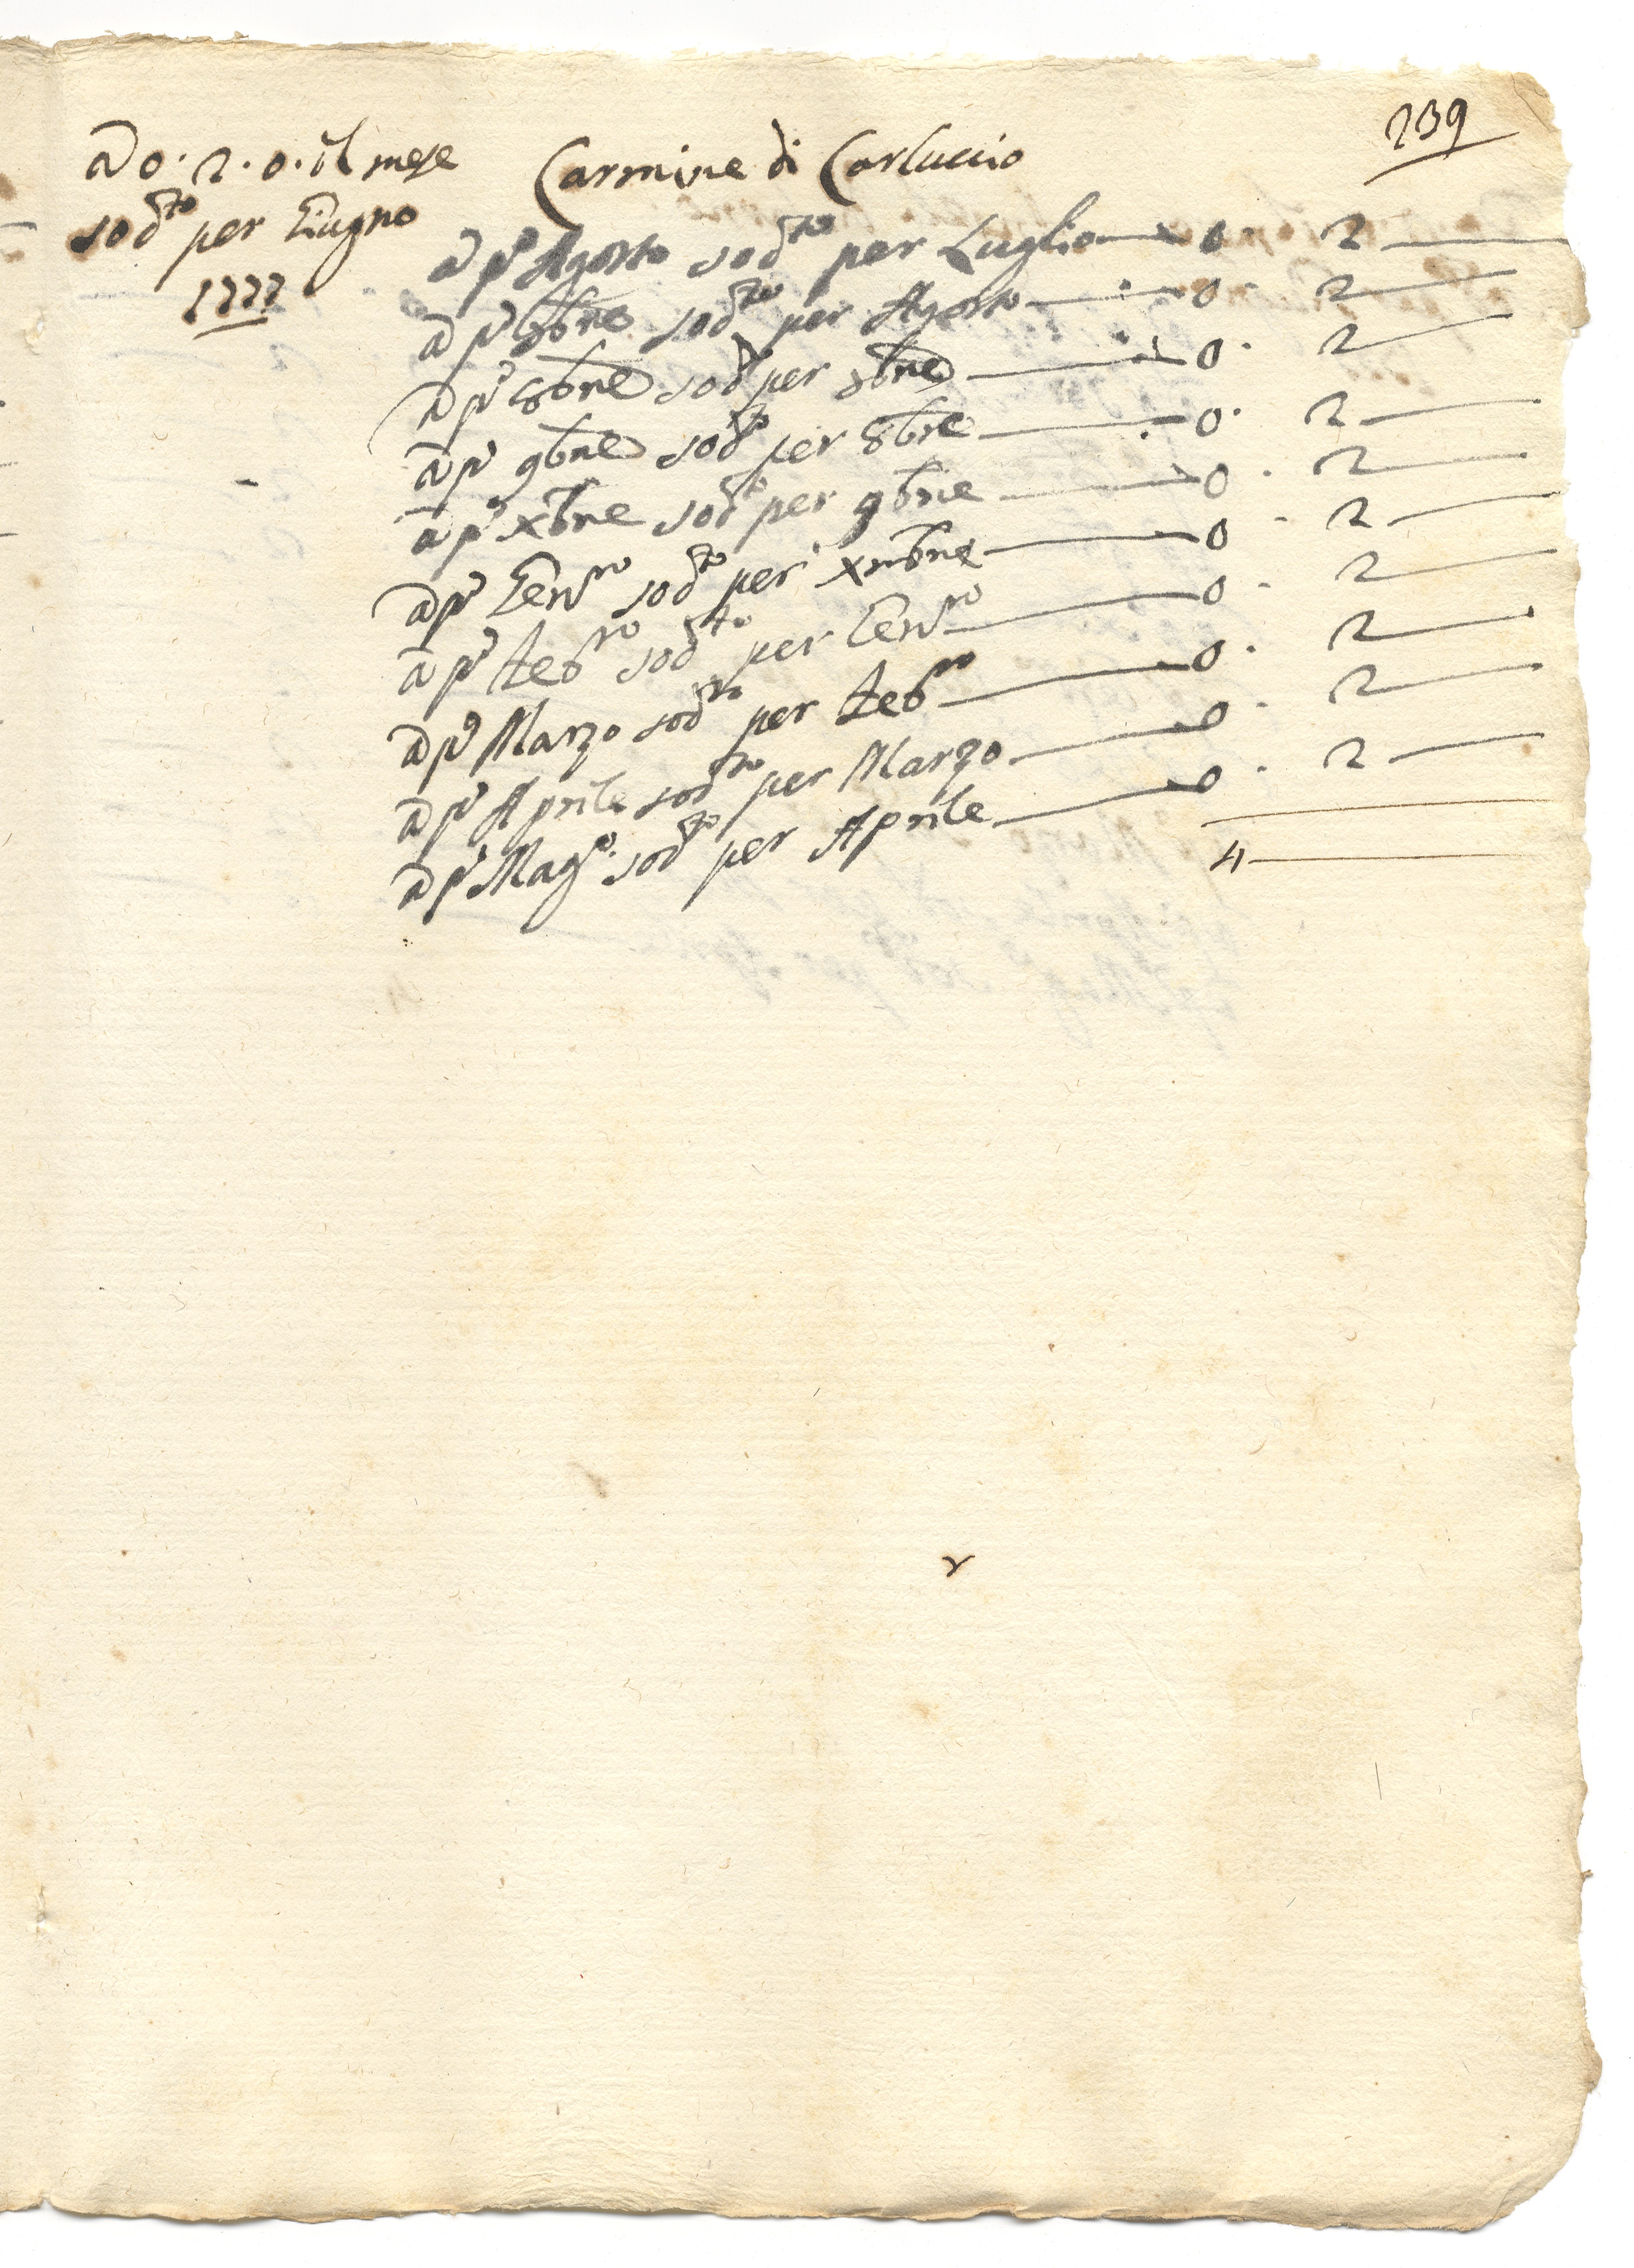 239
Carmine di Carluccio
a 0. 2. 0. il mese
sod.to per Giugno
1777
a p.o Agosto sod.to per Luglio — 0. 2 —
a p.o 7bre sod.to per Agosto — 0. 2 —
a p.o 8bre sod.to per 7bre — 0. 2 —
a p.o 9bre sod.to per 8bre — 0. 2 —
a p.o xbre sod.to per 9bre — 0. 2 —
a p.o Gen.ro sod.to per xmbre — 0. 2 —
a p.o Feb.ro sod.to per Gen.ro — 0. 2 —
a p.o Marzo sod.to per Feb.ro — 0. 2 —
a p.o Aprile sod.to per Marzo — 0. 2 —
a p.o Mag.o sod.to per Aprile — 0. 2 —
4 —